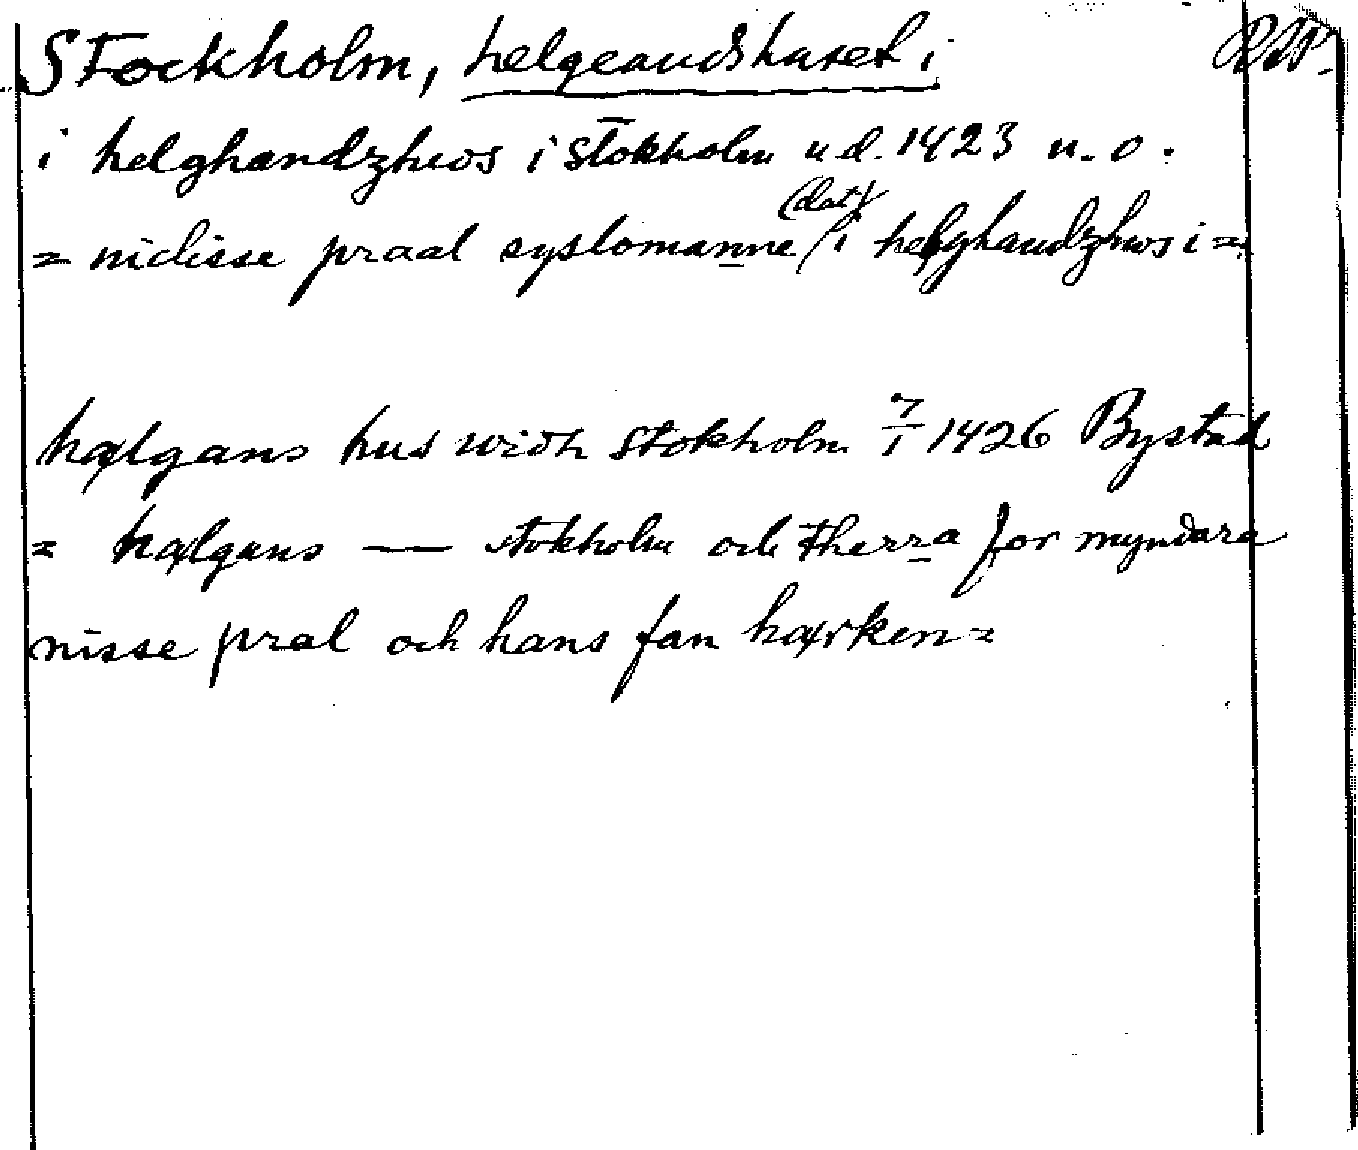 Stockholm, helgeandshuset i
i helghandzhws i stokholm u.d. 1423 u. o.
= niclisse praal syslomanne (dat) / i helghandzhws i =
hælgans hus widh stokholm 7/1 1426 Bystad
= hælgans — stokholm och therra for myndara
nisse pral och hans fan hærken =